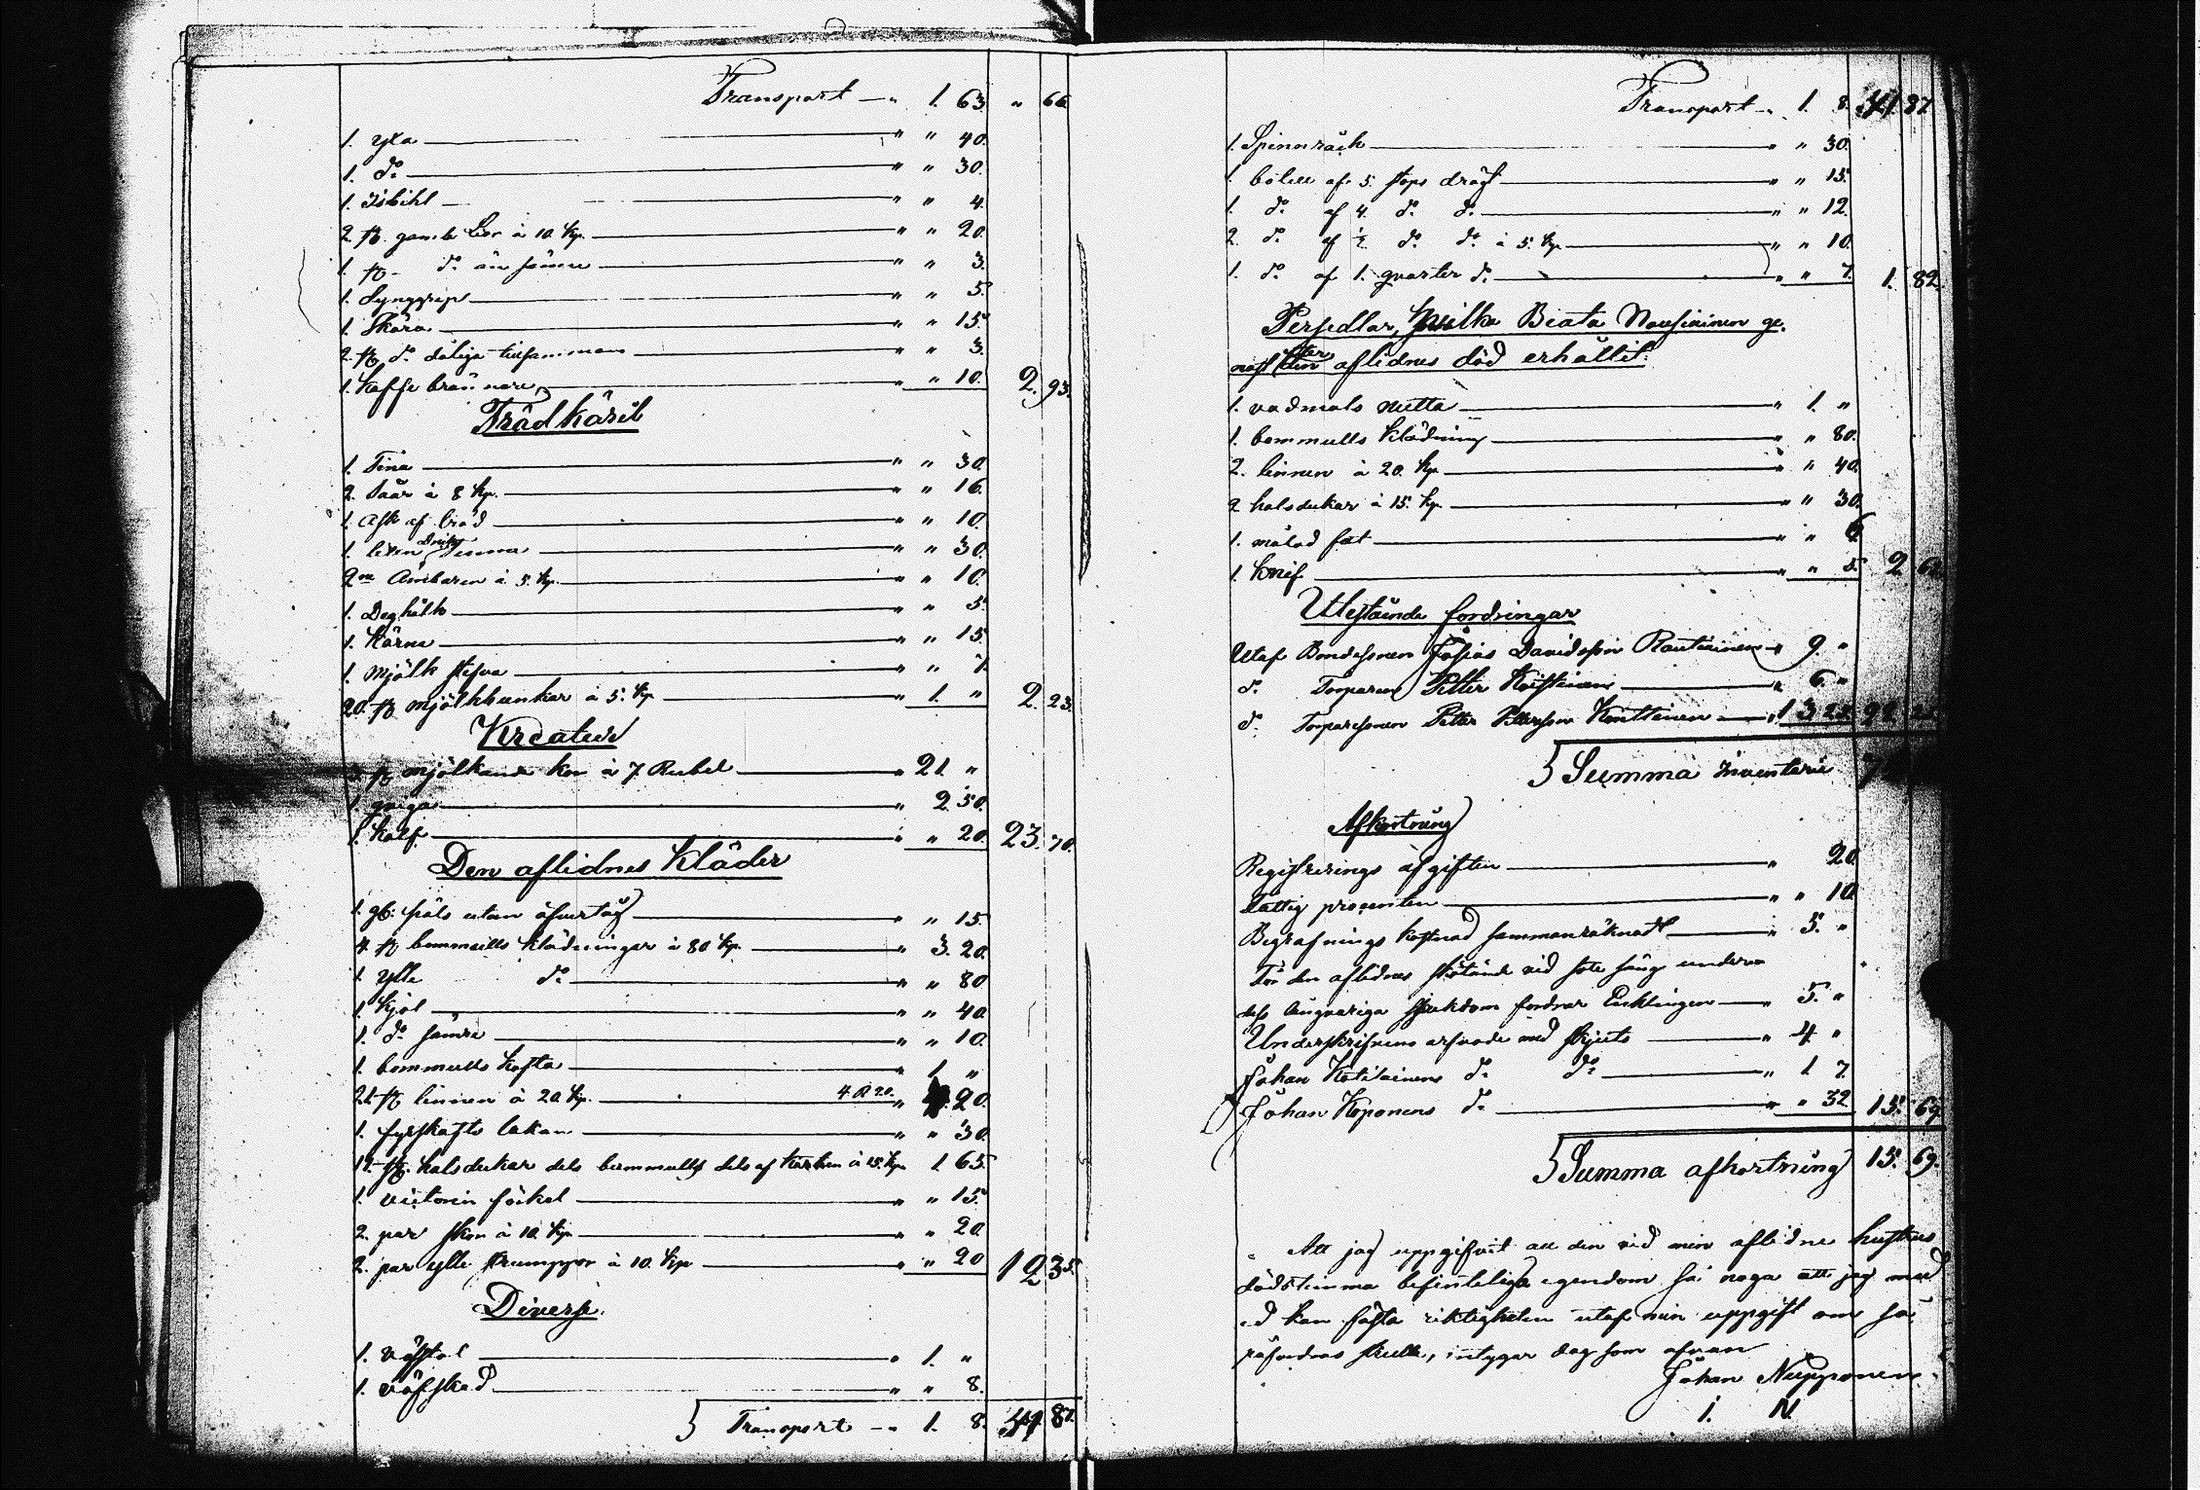 Transport — " 1. 63. " 66.
1. yxa " " 40.
1. do " " 30.
1. Isbihl " " 4.
2. st. gamla Liar à 10. Kp. " " 20.
1. st. do än sämre " " 3.
1. Lynggrep " " 5.
1. Skära " " 15.
2. st. do dåliga tillsammans " " 3.
1. Kaffe brännare " " 10. 2. 93.
Trädkäril
1. Tina " " 30.
2. Såår à 8 Kp. " " 16.
1. Ask af bräd " " 10.
1. liten Dricks Tunna " " 30.
2ne Ämbaren à 5. Kp. " " 10.
1. Deghålk " " 5.
1. Kärna " " 15.
1. Mjölk stäfva " " 7.
20. st. mjölkbunkar à 5. Kp. " 1. " 2. 23.
Kreatur
3. st. mjölkande kor à 7. Rubel " 21. "
1. qviga " 2. 50.
1. kalf " " 20. 23. 70.
Den aflidnes Kläder
1. gl: päls utan öfvertåg " " 15
4. st. bommulls klädningar à 80 Kp. " 3. 20.
1. ylle do " " 80
1. kjol " " 40.
1. do sämre " " 10.
1. bommulls kofta " 1. "
21. st. linnen à 20. Kp. 4. R 20. " 4. 20.
1. fyrskafts lakan " " 30.
11. st. halsdukar dels bummulls dels af à 15. Kp. 1 65.
1. " " 15.
2. par skor à 10. Kp. " " 20.
2. par ylle strumpor à 10. Kp " " 20 12 35.
Diverse.
1. väfstol " 1. "
1. väfsked " " 8.
Transport — " 1. 8. 44. 87.
Transport — " 1. 8. 44. 87.
1. Spinnråck " " 30.
1. bölell af 5. stops drägt " " 15.
1. do af 4. do do " " 12.
2. do af ½ do do à 5. Kp. " " 10.
1. do af 1. qvarter do " " 7. 1. 82.
Persedlar, hvilka Beata Nousiainen ge-
nast efter den aflidnes död erhållit.
1. vadmals " 1. "
1. bommulls klädning " " 80.
2. linnen à 20. Kp. " " 40.
2 halsdukar à 15. Kp. " " 30.
1. målad fat " " 6.
1. knif " " 5. 2. 61.
Utestående fordringar
Utaf Bondesonen Josias Davidsson Rautiainen " 9. "
do Torparen Petter " 6. "
do Torparesonen Petter Pettersson " 13 25.
Summa Inventarii
Afkortning
Registrerings afgiften " 20.
Fattig procenten " " 10.
Begrafnings kostnad sammanräknadt " 5. "
För den aflidnes skötande vid sote säng under
dess långvariga sjukdom fordrar Enklingen " 5. "
Underskrifvens arfvode med skjuts " 4 "
Johan Kotilainens do do " 1 7.
Johan Koponens do " " 32 15. 69.
Summa afkortning 15. 69.
Att jag uppgifvit all den vid min aflidne hustrus
dödstimma befinteliga egendom så noga att jag med
ed kan fästa riktigheten utaf min uppgift om så
påfordras skulle, intygar dag som ofvan
Johan Nupponen.
I. N.